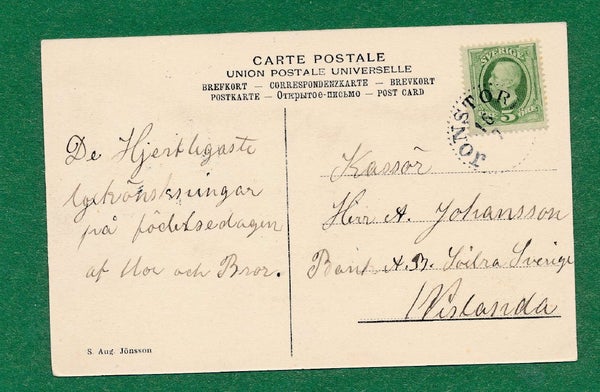 CARTE POSTALE
UNION POSTALE UNIVERSELLE
BREFKORT — CORRESPONDENZKARTE — BREVKORT
POSTKARTE — Открытое-письмо — POST CARD
SVERIGE
5 ÖRE
STOR
18
De Hjertligaste
lyckönskningar
på födelsedagen
af Moe och Bror.
Kassör
Herr A. Johansson
Bank A.B. Södra Sverige
Vislanda
S. Aug. Jönsson